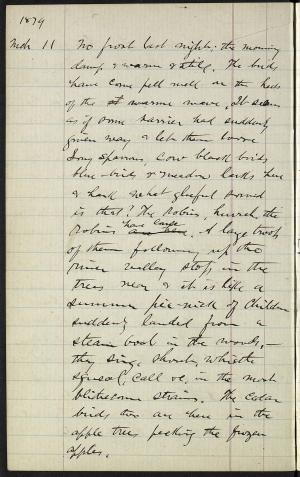 1879
Mch 11 No frost last night; the morning
damp & warm & still. The birds
have come pell mell on the heels
of the st warm wave. It seems
as if some barrier had suddenly
given way & let them loose
Song sparrows, cow black birds
blue-birds & meadow larks here
& hark what gleeful sound
is that? The Robins, hurrah, the
Robins have come are here. A large troop
of them following up the
river valley stop in the
trees near & it is like a
summer pic-nick of children
suddenly landed from a
steam boat in the woods,—
they sing, shout, whistle
squeal, call &c, in the most
blithesome strains. The cedar
birds too are here in the
apple trees pecking the frozen
apples.